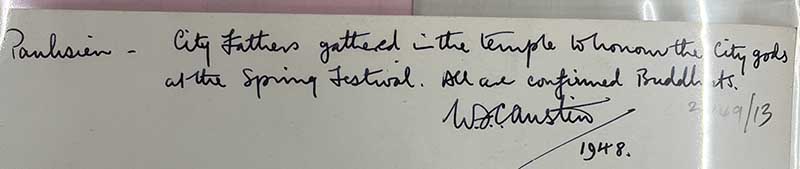 Pauhsien - City Fathers gathered in the temple to honour the City gods
at the Spring Festival. All are confirmed Buddhists.
W.S.C. Austin
/13
1948.